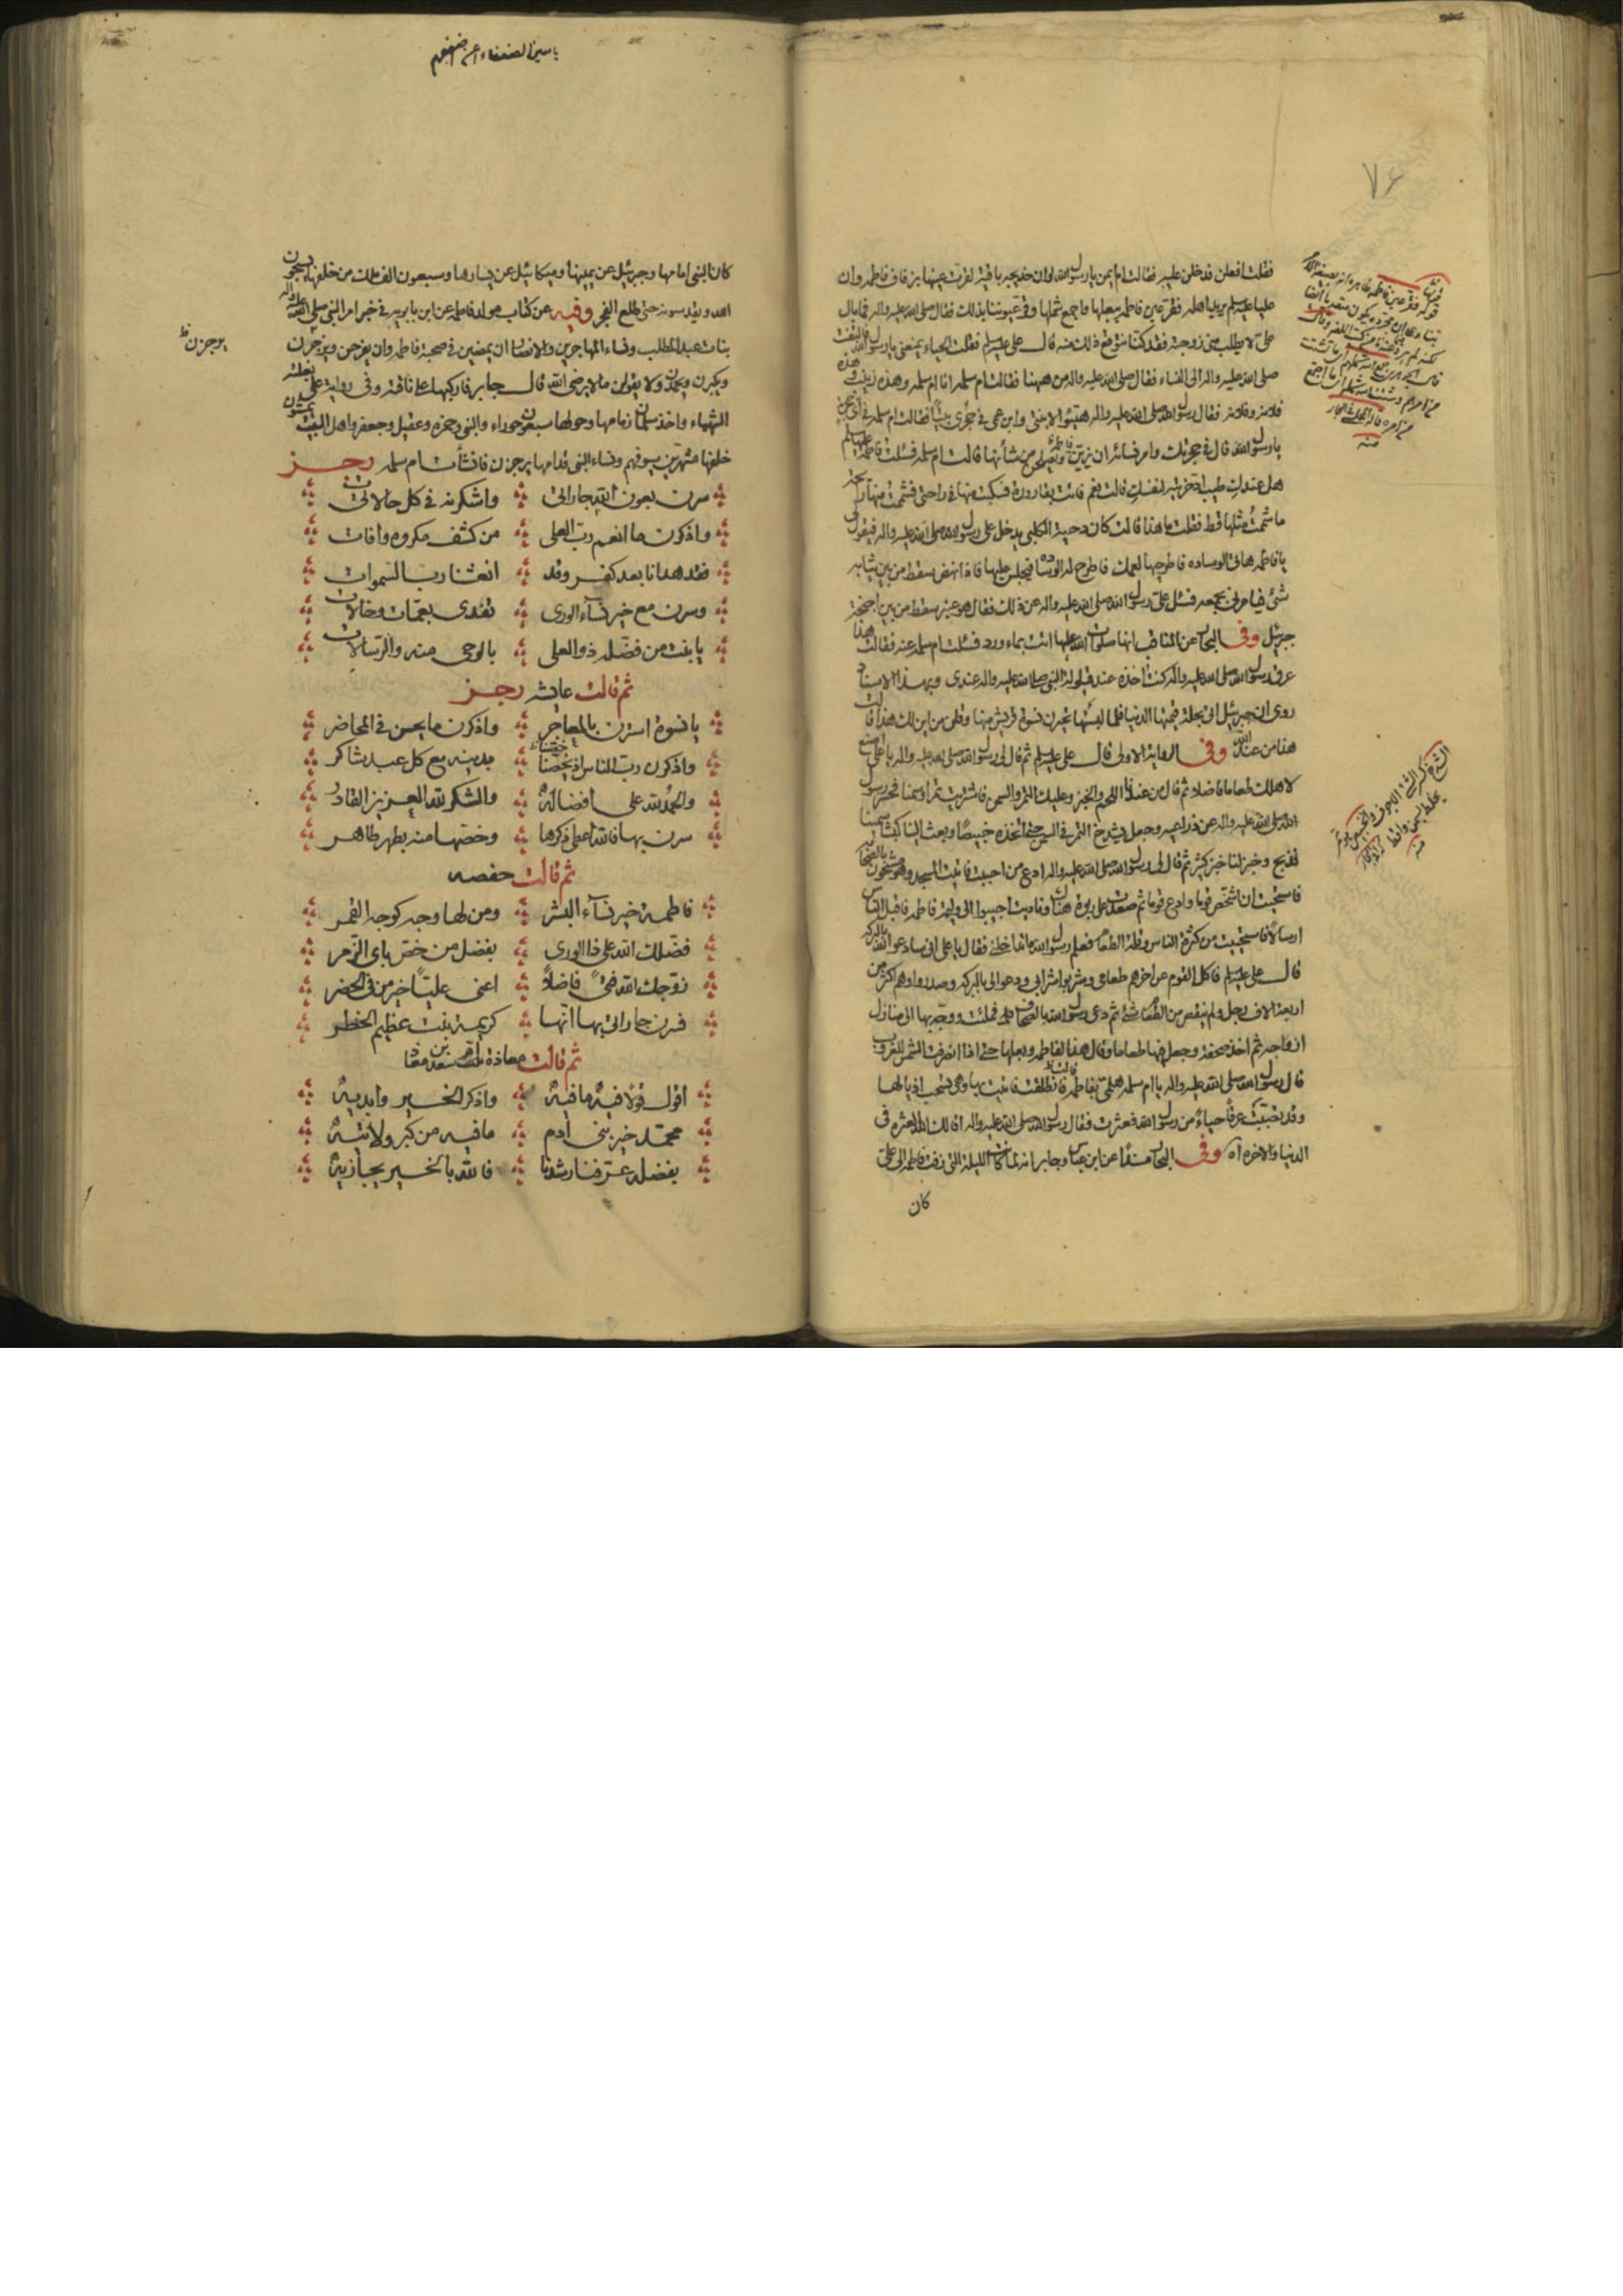 ٧٦
فقلت افعلن فدخلن عليه فقالت ام ايمن يا رسول الله لو ان خديجه باقية لقرت عينها بزفاف فاطمه وان
عليا عليه السلم يريد اهله فقر عين فاطمه ببعلها واجمع شملها وقر عيوننا بذلك فقال صلى الله عليه واله فما بال
على لا يطلب منى زوجته فقد كنا نتوقع ذلك منه قال على عليه السلم فقلت الحياء يمنعنى يا رسول الله فالتفت
صلى الله عليه واله الى النساء فقال صلى الله عليه واله من ههنا فقالت ام سلمه انا ام سلمه وهذه زينب وهذه
فلانة وفلانة فقال رسول الله صلى الله عليه واله هيئوا لابنتى وابن عمى فى حجرى بيتا فقالت ام سلمه فى اى حجرة
يا رسول الله قال فى حجرتك وامر نسائه ان يزين فاطمه ويصلحن من شأنها قالت ام سلمه فسئلت فاطمه عليها السلم
هل عندك طيب ادخرتيه لنفسك قالت نعم فاتت بقارورة فسكبت منها فى راحتى فشممت منها رائحة
ما شممت مثلها قط فقلت ما هذا قالت كان دحية الكلبى يدخل على رسول الله صلى الله عليه واله فيقول لى
يا فاطمه هاتى الوساده فاطرحيها لعمك فاطرح له الوسادة فيجلس عليها فاذا نهض سقط من بين ثيابه
شئ فيامرنى بجمعه فسئل على رسول الله صلى الله عليه واله عن ذلك فقال هو عنبر يسقط من بين اجنحة
جبرئيل وفى البحار عن المناقب انها صلوات الله عليها اتت بماء ورد فسئلت ام سلمه عنه فقالت هذا
عرق رسول الله صلى الله عليه واله كنت اخذه عند قيلولة النبى صلى الله عليه واله عندى وبهذا الاسناد
روى ان جبرئيل اتى بحلة قيمتها الدنيا فلما لبستها تحيرن نسوة قريش منها وقلن من اين لك هذا قالت
هذا من عند الله وفى الرواية الاولى قال على عليه السلم ثم قال لى رسول الله صلى الله عليه واله يا على اصنع
لاهلك طعاما فاضلا ثم قال من عندنا اللحم والخبز وعليك التمر والسمن فاشتريت تمرا وسمنا فحسر رسول
الله صلى الله عليه واله عن ذراعيه وجعل يشدخ التمر فى السمن حتى اتخذه خبيصا وبعث الينا كبشا سمينا
فذبح وخبز لنا خبز كثير ثم قال لى رسول الله صلى الله عليه واله ادع من احببت فاتيت المسجد وهو مشحون بالصحابه
فاستحييت ان اشخص قوما وادع قوما ثم صعدت على ربوة هناك وناديت اجيبوا الى وليمة فاطمه فاقبل الناس
ارسالا فاستحييت من كثرة الناس وقلة الطعام فعلم رسول الله ما تداخلنى فقال يا على انى سادعو الله بالبركه
قال على عليه السلم فاكل القوم عن اخرهم طعامى وشربوا شرابى ودعوا لى بالبركه وصدروا وهم اكثر من
اربعة الاف رجل ولم ينقص من الطعام شئ ثم دعى رسول الله بالصحاف فملئت ووجه بها الى منازل
ازواجه ثم اخذ صحفة وجعل فيها طعاما وقال هذا لفاطمه وبعلها حتى اذا انصرفت الشمس للغروب
قال رسول الله صلى الله عليه واله يا ام سلمه هلمى فاطمه قالت فانطلقت فاتيت بها وهى تسحب اذيالها
وقد تصببت عرقا حياء من رسول الله فعثرت فقال رسول الله صلى الله عليه واله اقالك الله العثرة فى
الدنيا والاخره اه وفى البحار مسندا عن ابن عباس وجابر انه لما كانت الليلة التى زفت فاطمه الى على
كان
منه
منه
كان النبى امامها وجبرئيل عن يمينها وميكائيل عن يسارها وسبعون الف ملك من خلفها يسبحون
الله ويقدسونه حتى طلع الفجر وفيه عن كتاب مولد فاطمه عن ابن بابويه فى خبر امر النبى صلى الله عليه واله
بنات عبد المطلب ونساء المهاجرين والانصار ان يمضين فى صحبة فاطمه وان يفرحن ويرجزن
ويكبرن ويحمدن ولا يقولن ما لا يرضى الله قال جابر فاركبها على ناقته وفى رواية على بغلته
الشهباء واخذ سلمان زمامها وحولها سبعون حوراء والنبى وحمزه وعقيل وجعفر واهل البيت يمشون
خلفها مشهرين سيوفهم ونساء النبى قدامها يرجزن فانشأت ام سلمه رجـز
سرن بعون الله جاراتى واشكرنه فى كل حالات
واذكرن ما انعم رب العلى من كشف مكروه وافات
فقد هدانا بعد كفر وقد انعشنا رب السموات
وسرن مع خير نسآء الورى تفدى بعمات وخالات
يا بنت من فضله ذو العلى بالوحى منه والرسالات
ثم قالت عايشه رجـز
يا نسوة استرن بالمعاجر واذكرن ما يحسن فى المحاضر
واذكرن رب الناس اذ يخصنا بدينه مع كل عبد شاكر
والحمد لله على افضاله والشكر لله العزيز القادر
سرن بها فالله اعلى ذكرها وخصها منه بطهر طاهر
ثم قالت حفصه
فاطمة خير نسآء البشر ومن لها وجه كوجه القمر
فضلك الله على ذا الورى بفضل من خص باى الزمر
زوجك الله فتى فاضلا اعنى عليا خير من فى الحضر
فسرن جاراتى بها انها كريمة بنت عظيم الخطر
ثم قالت معاذة ام سعد بن معاذ
اقول قولا فيه ما فيه واذكر الخير وابديه
محمد خير بنى ادم ما فيه من كبر ولا تيه
بفضله عرفنا رشدنا فالله بالخير يجازيه
يرجزن ظ